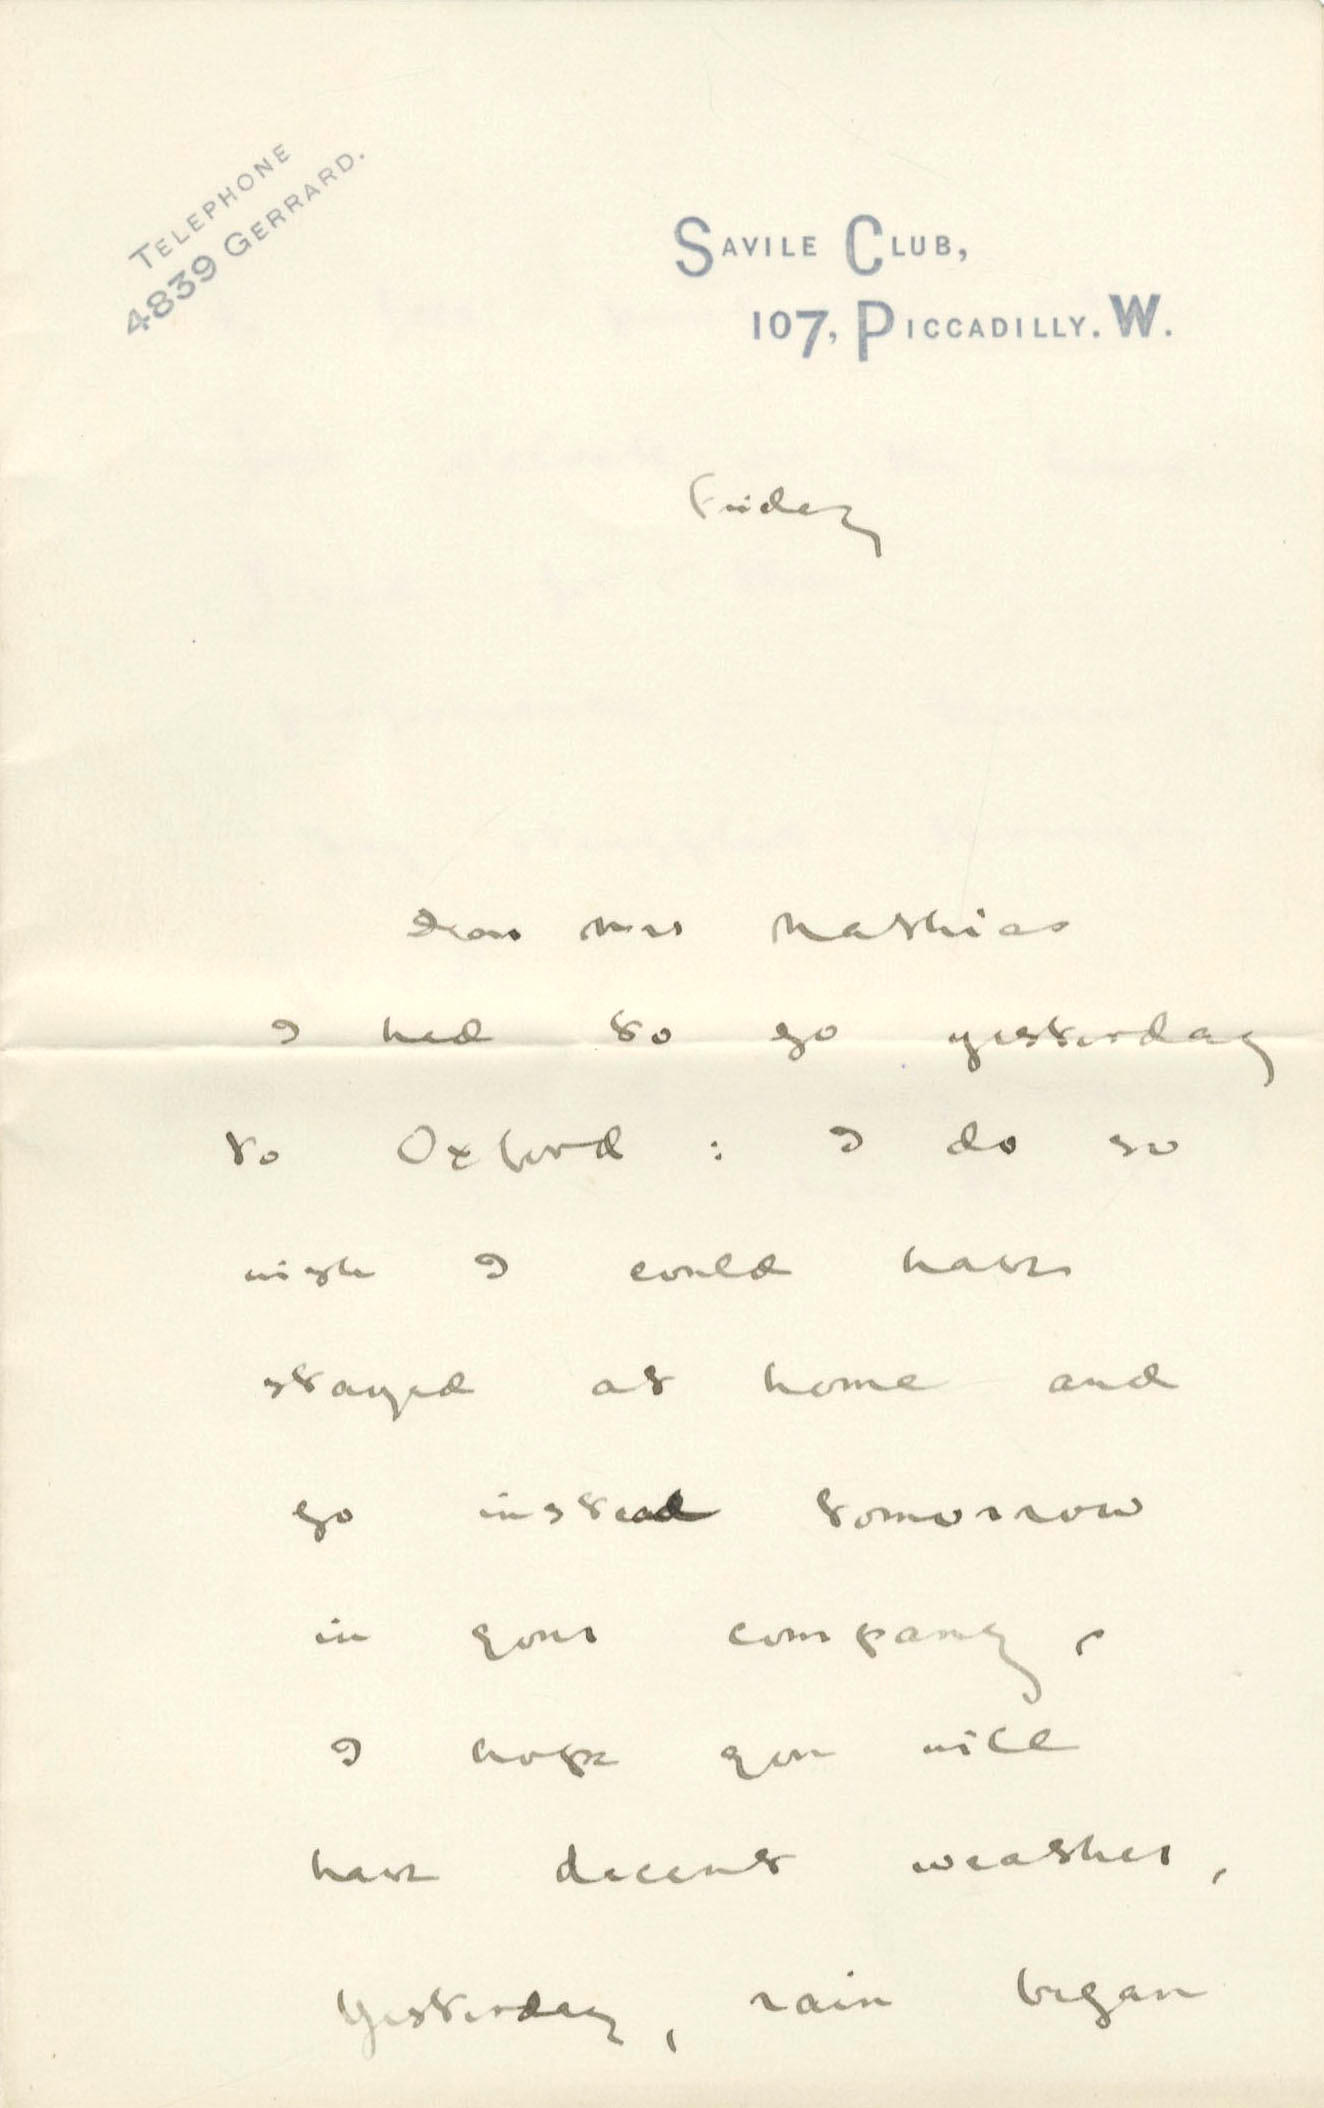 TELEPHONE
4839 GERRARD.
SAVILE CLUB,
107, PICCADILLY. W.
Friday
Dear Mrs Mathias
I had to go yesterday
to Oxford : I do so
wish I could have
stayed at home and
go instead tomorrow
in your company.
I hope you will
have decent weather,
Yesterday, rain began